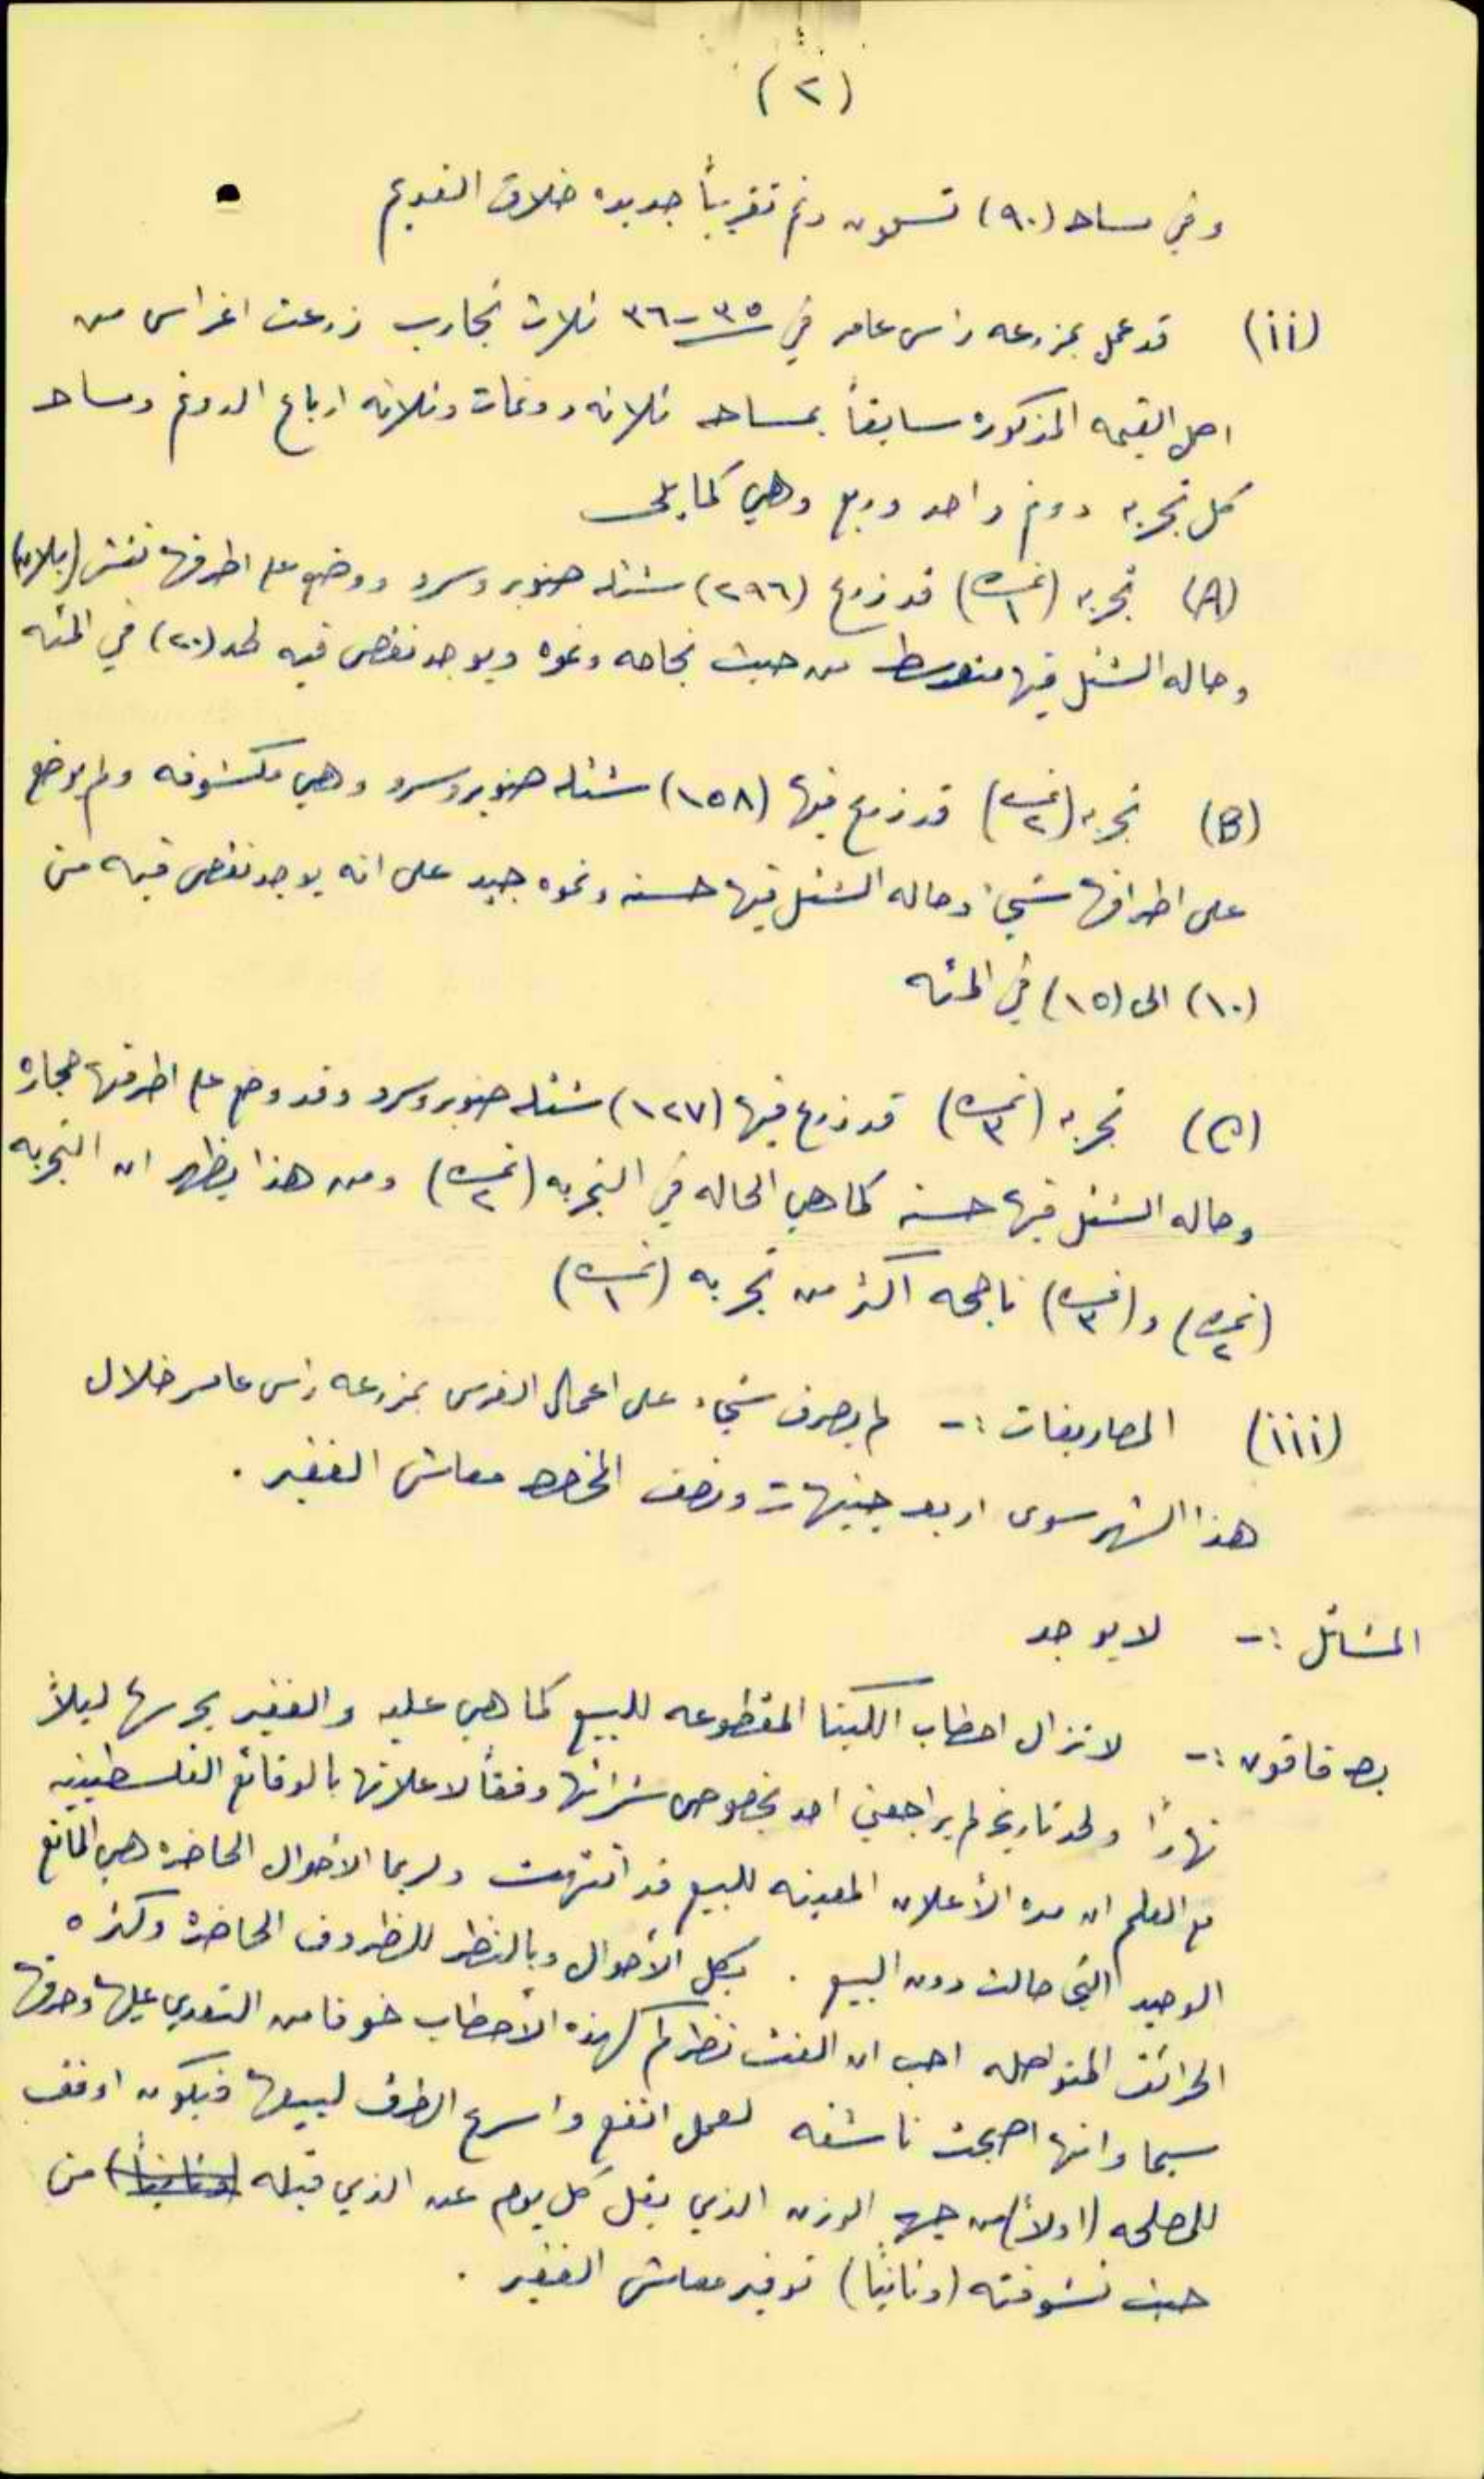 (٢)
وفي مساحة (٩٠) تسعون دنم تقريباً جديده خلاف القديم
(ii) قد عمل بمزرعه راس عامر في ٣٥-٣٦ ثلاث تجارب زرعت اغراس من
اصل القيمه المذكوره سابقاً بمساحه ثلاثه دونمات وثلاثه ارباع الدونم ومساحه
كل تجربه دونم واحد وربع وهي كما يلي
(A) تجربه (نمره ١) قد زرع (٢٩٦) شتله صنوبر وسرو ووضع على اطرافها نتش (بلان)
وحاله الشتل فيها متوسطه من حيث نجاحه ونموه ويوجد نقص فيه لحد (٢٠) في المئه
(B) تجربه (نمره ٢) قد زرع فيها (١٥٨) شتله صنوبر وسرو وهي مكشوفه ولم يوضع
على اطرافها شيئ وحاله الشتل فيها حسنه ونموه جيد على انه يوجد نقص فيه من
(١٠) الى (١٥) في المئه
(C) تجربه (نمره ٣) قد زرع فيها (١٢٧) شتله صنوبر وسرو وقد وضع على اطرافها حجاره
وحاله الشتل فيها حسنه كما هي الحاله في التجربه (نمره ٢) ومن هذا يظهر ان التجربه
(نمره ٢) و (نمره ٣) ناجحه اكثر من تجربه (نمره ١)
(iii) المصاريفات :- لم يصرف شيء على اعمال الغرس بمزرعه راس عامر خلال
هذا الشهر سوى اربعه جنيهات ونصف معاش الغفير .
المشاتل :- لا يوجد
قاقون :- لا تزال احطاب الكينا المقطوعه للبيع كما هي عليه والغفير يحرسها ليلاً
نهاراً ولحد تاريخه لم يراجعني احد بخصوص شرائها وفقاً لاعلانها بالوقائع الفلسطينيه
مع العلم ان مده الأعلان المعينه للبيع قد انتهت ولربما الاحوال الحاضره هي المانع
الوحيد التي حالت دون البيع . بكل الأحوال وبالنظر للظروف الحاضره وكثره
الحرائق المتواصله احب ان الفت نظركم لهذه الأحطاب خوفا من التعدي عليها وحرقها
سيما وانها اصبحت ناشفه لعمل انفع واسرع الطرق لبيعها فيكون اوفق
للمصلحه (اولاً) من جهه الوزن الذي يقل كل يوم عن الذي قبله (وثانياً) من
حيث نشوفته (وثانياً) توفير معاش الغفير .